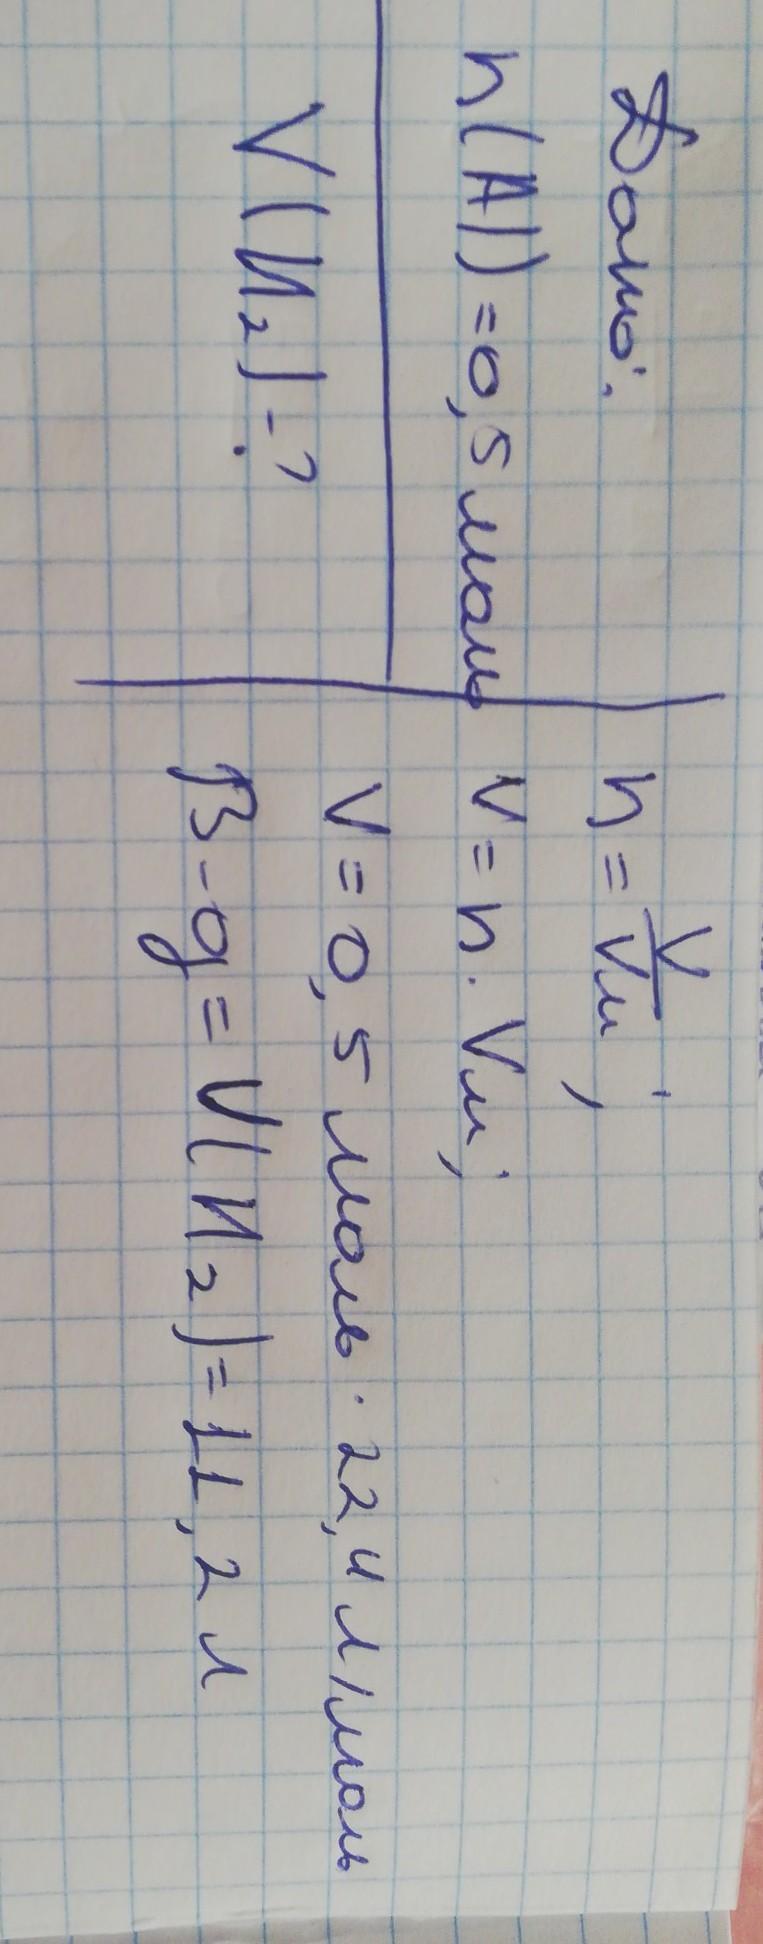 Дано:
n(Al)=0,5моль
V(H₂)-?
n=V/Vм;
V=n·Vм;
V=0,5моль·22,4л/моль
В-дь=V(H₂)=11,2л